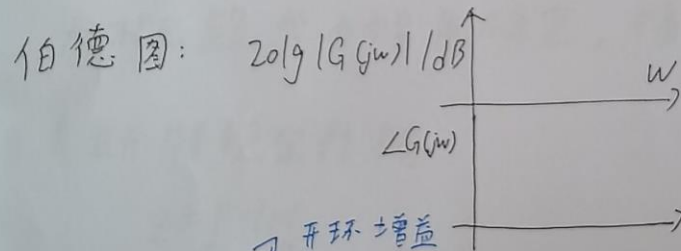 伯德图： 20lg|G(jw)|/dB
w
∠G(jw)
开环增益